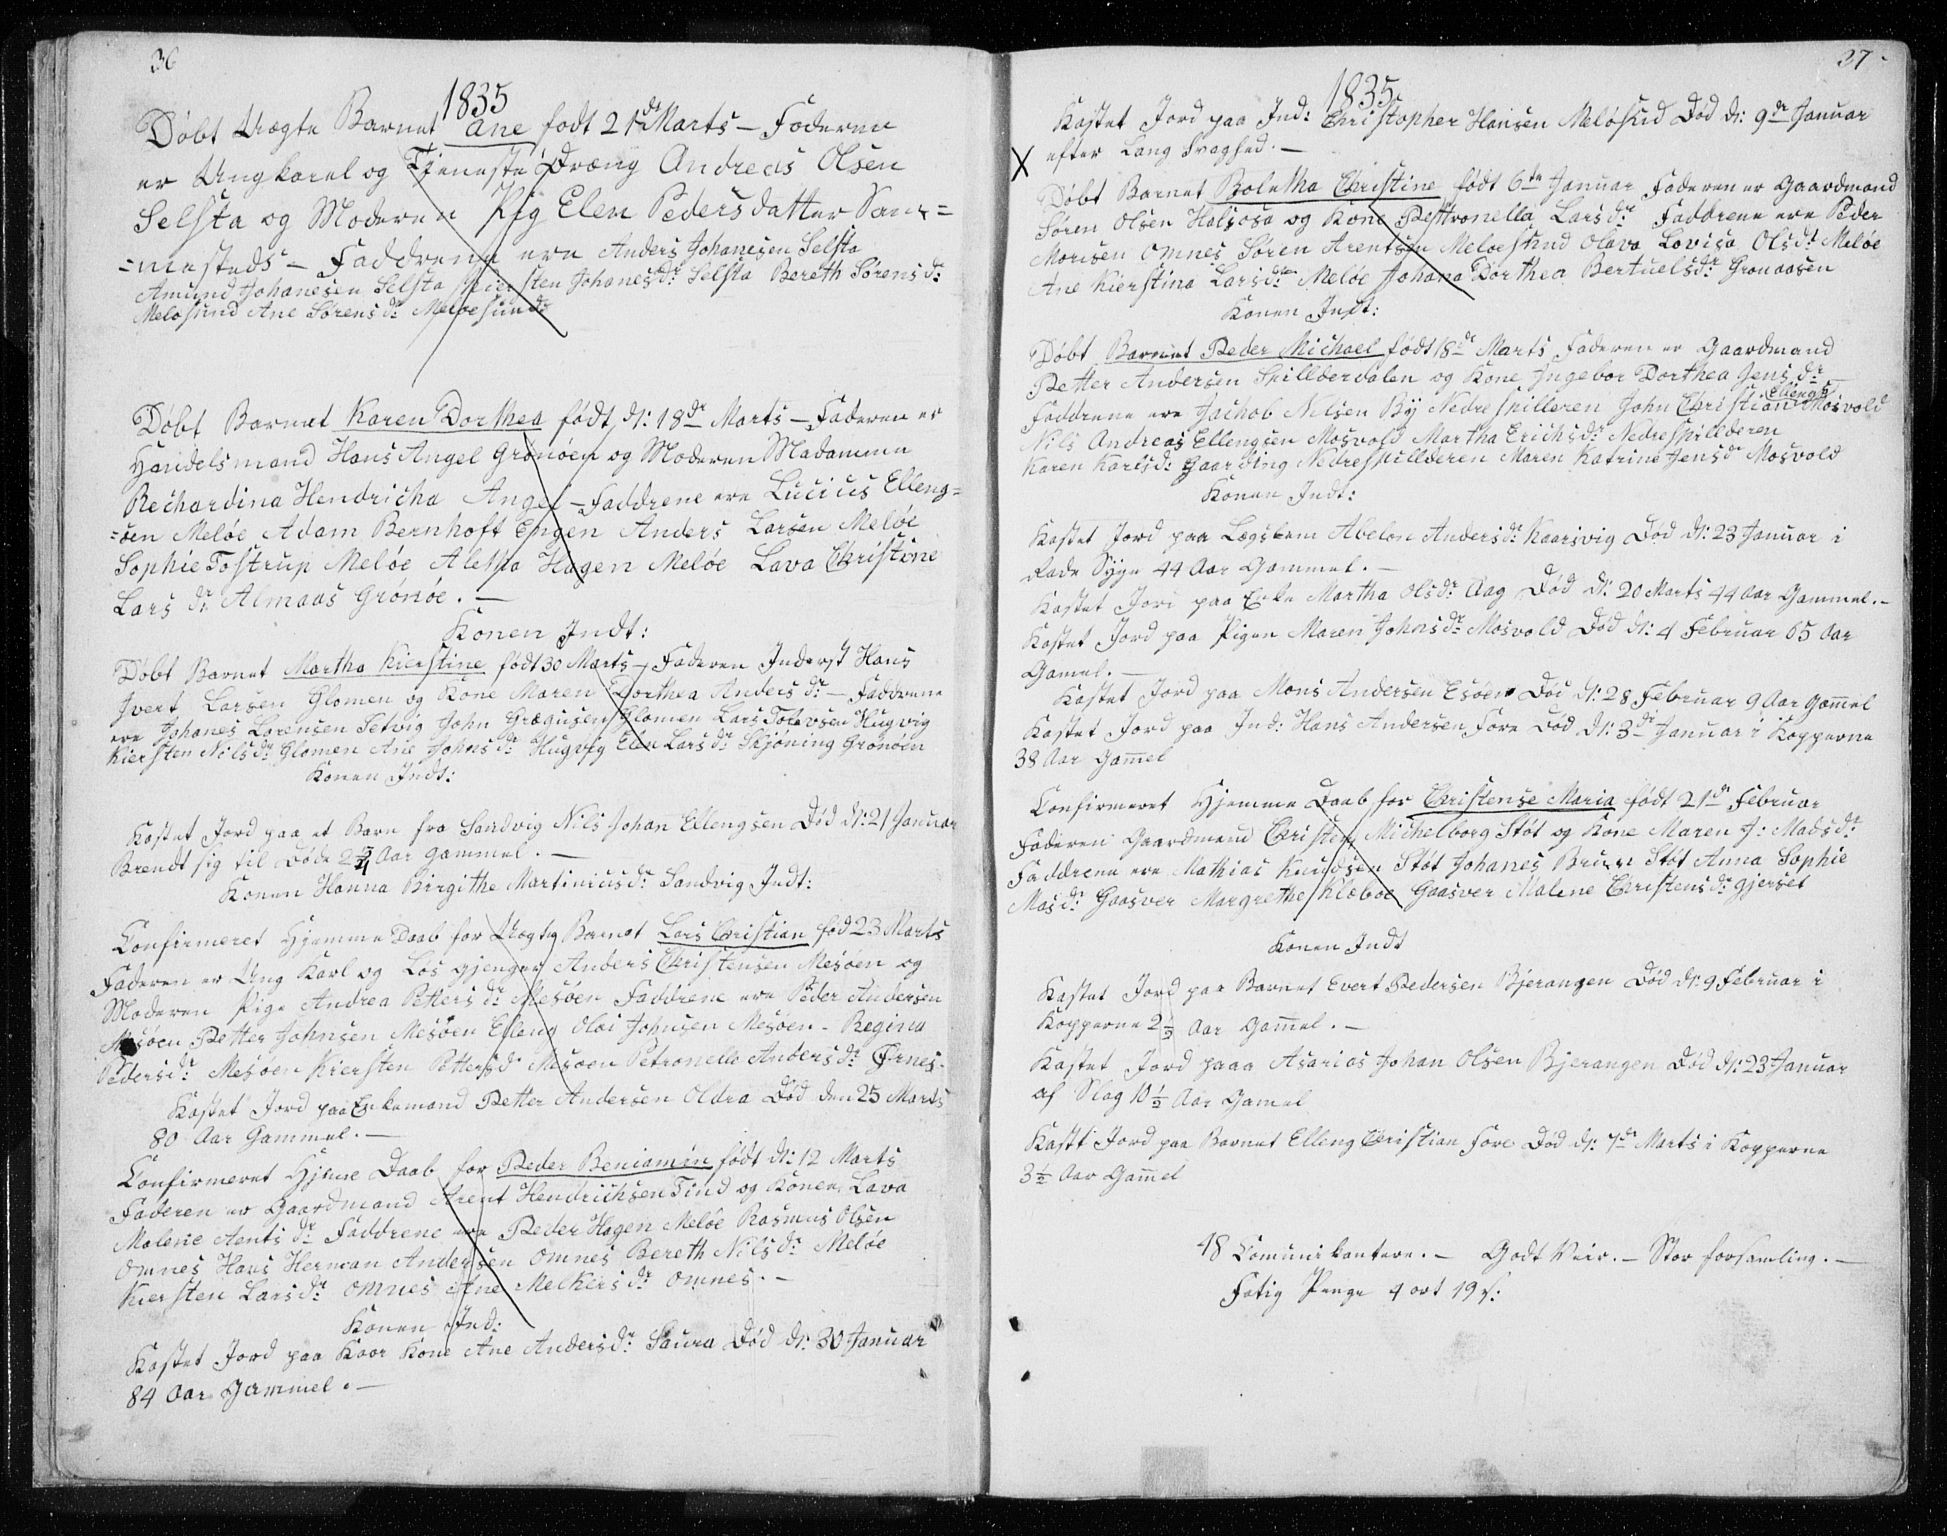 36
1835
Døbt Uægte Barnet Ane født 21de Marts — Faderen
er Ungkarel og Tjeneste Dræng Andreas Olsen
Selsta og Moderen Pig Elen Pedersdatter Sam-
-mesteds — Faddrene ere Anders Johanesen Selsta
Amund Johanesen Selsta Kiersten Johanesdr Selsta Bereth Sørensdr
Meløsund Ane Sørensdr Meløesund
Døbt Barnet Karen Dorthea født d: 18de Marts — Faderen er
Handelsmand Hans Angel Grønøen og Moderen Madamme
Rechardina Hendricha Angel — Faddrene ere Lucius Elleng-
-sen Meløe Adam Bernhoft Engen Anders Larsen Meløe
Sophie Tostrup Meløe Aletha Hagen Meløe Lava Christine
Lars dr Almaas Grønøe. —
Konen Indt:
Døbt Barnet Martha Kierstine født 30 Marts — Faderen Inderst Hans
Ivert Larsen Glomen og Kone Maren Dorthea Andersdr — Faddrene
ere Johanes Lorensen Setvig John Grægusen Glomen Lars Tolevsen Hugvig
Kiersten Nilsdr Glomen Ane Johnsdr Hugvig Elen Larsdr Skjøning Grønøen
Konen Indt:
Kastet Jord paa et Barn fra Sandvig Nils Johan Ellengsen Død d: 21 Januar
Brendt sig til Døde 2 3/4 Aar gammel. —
Konen Hanna Birgithe Martiniusdr Sandvig Indt:
Confirmeret Hjemme Daab for Uægte Barnet Lars Christian fød 23 Marts
Faderen er Ung Karl og Løs gjenger Anders Christensen Mesøen og
Moderen Pige Andrea Pettersdr Mesøen Faddrene ere Peder Andersen
Mesøen Petter Johnsen Mesøen Elleng Olai Johnsen Mesøen - Regina
Pedersdr Mesøen Kiersten Pettersdr Mesøen Petronelle Andersdr Ørnes.
Kastet Jord paa Enkemand Petter Andersen Oldra Død den 25 Marts
80 Aar Gammel. —
Confirmeret Hjeme Daab for Peder Beniamin født d: 12 Marts
Faderen er Gaardmand Arent Hendrichsen Tind og Konen Lava
Malene Aentsdr Faddrene ere Peder Hagen Meløe Rasmus Olsen
Omnes Hans Herman Andersen Omnes Bereth Nilsdr Meløe
Kiersten Larsdr Omnes Ane Melkersdr Omnes. —
Konen Ind:
Kastet Jord paa Kaar Kone Ane Andersdr Saura Død d: 30 Januar
84 Aar Gammel. —
37
1835
Kastet Jord paa Ind: Christopher Hansen Meløsund Død d: 9de Januar
X efter Lang Svaghed. —
Døbt Barnet Boletha Christine født 6te Januar Faderen er Gaardmand
Søren Olsen Halsosa og Kone Pettronella Larsdr Faddrene ere Peder
Morisen Omnes Søren Arentsen Meløesund Olava Lovisa Olsdr Meløe
Ane Kierstina Larsdr Meløe Johana Dorthea Bertuelsdr Gronaasen
Konen Indt:
Døbt Barnet Peder Michael født 18de Marts Faderen er Gaardmand
Petter Andersen Spillderdalen og Kone Ingebor Dorthea Jensdr
Faddrene ere Jachob Nilsen By Nedre Spilleren John Christian Ellengs: Mosvold
Nils Andreas Ellengsen Mosvold Martha Erichsdr Nedrespillderen
Karen Karlsdr Gaarding Nedrespillderen Maren Katrine Jensdr Mosvold
Konen Indt:
Kastet Jord paa Lægslem Abelon Andersdr Kaarsvig Død d: 23 Januar i
Rade Syge 44 Aar Gammel. —
Kastet Jord paa Enke Martha Olsdr Aag Død d: 20 Marts 44 Aar Gammel. —
Kastet Jord paa Pigen Maren Johnsdr Mosvold Død d: 4 Februar 65 Aar
Gamel. —
Kastet Jord paa Mons Andersen Esøen Død d: 28 Februar 9 Aar Gamel
Kastet Jord paa Ind: Hans Andersen Fore Død d: 3de Januar i Kopperne
38 Aar Gamel
Confirmeret Hjemme Daab for Christense Maria født 21de Februar
Faderen Gaardmand Christen Michelborg Støt og Kone Maren J: Madsdr
Faddrene ere Mathias Knudsen Støt Johanes Bruun Støt Anna Sophie
Masdr Gaasver Margrethe Klæboe Gaasver Malene Christensdr Gjerset
Konen Indt
Kastet Jord paa Barnet Evert Pedersen Bjerangen Død d: 9 Februar i
Kopperne 2 1/2 Aar Gamel. —
Kastet Jord paaa Asarias Johan Olsen Bjerangen Død d: 23 Januar
af Slag 10 1/2 Aar Gamel
Kastt Jord paa Barnet Elleng Christian Fore Død d: 7de Marts i Kopperne
3 1/2 Aar Gamel
48 Comunikantere. — Godt Veir. — Stor forsamling. —
Fatig Penge 4 ort 19 s: